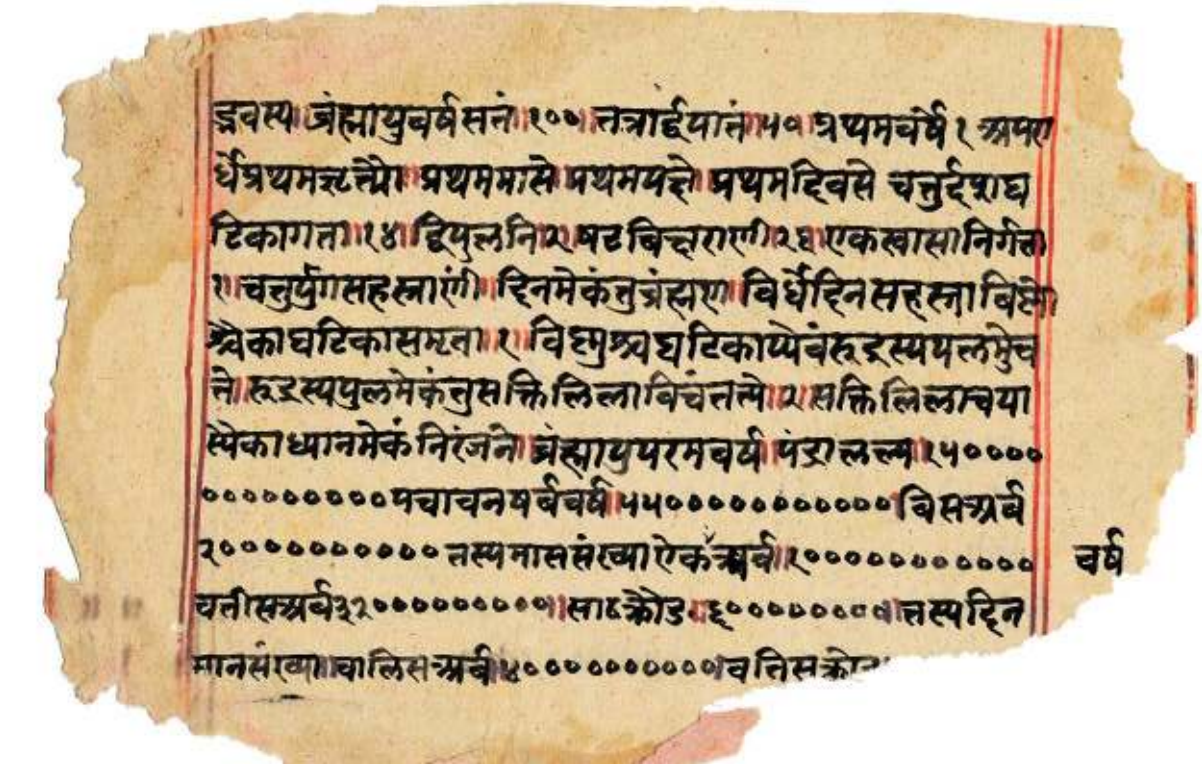 द्भवस्य॥ ब्रंह्मायुवर्षसतं॥१००॥ तत्रार्द्धयातं॥५०॥ प्रथमवर्षे १ अपरा
र्धेप्रथमकृत्यै॥ प्रथममासे॥ प्रथमपक्षे॥ प्रथमदिवसे चतुर्दशघ
टिकागता॥१४॥ द्विपुलनि॥२॥ षट विछराणी॥२६॥ एकस्वासानिर्गता
१॥ चतुर्युगसहस्राणी॥ दिनमेकंतुब्रंह्मण॥ विर्धेदिनसहस्रा विष्णो
श्चैकाघटिकासमृता॥१॥ विष्णुश्चघटिकाप्येवंरूद्रस्यपलमुच
ते॥ रूद्रस्यपुलमेकंतुसक्तिलिलाविचंतत्ये॥२॥ सक्तिलिलाचया
स्यैकाध्यानमेकं निरंजने॥ ब्रंह्मायुपरमवर्ष॥ १५००००
००००००००००पचाचनषर्बवर्ष॥५५००००००००००००॥विसअर्ब
२००००००००००० तस्यमाससंख्याऐकअर्ब॥१००००००००००००० वर्ष
चतीसअर्ब३२००००००००००॥साटक्रोड॥६०००००००००॥तस्यदिन
मानसंख्या॥चालिसअर्ब॥४००००००००००००॥वतिस